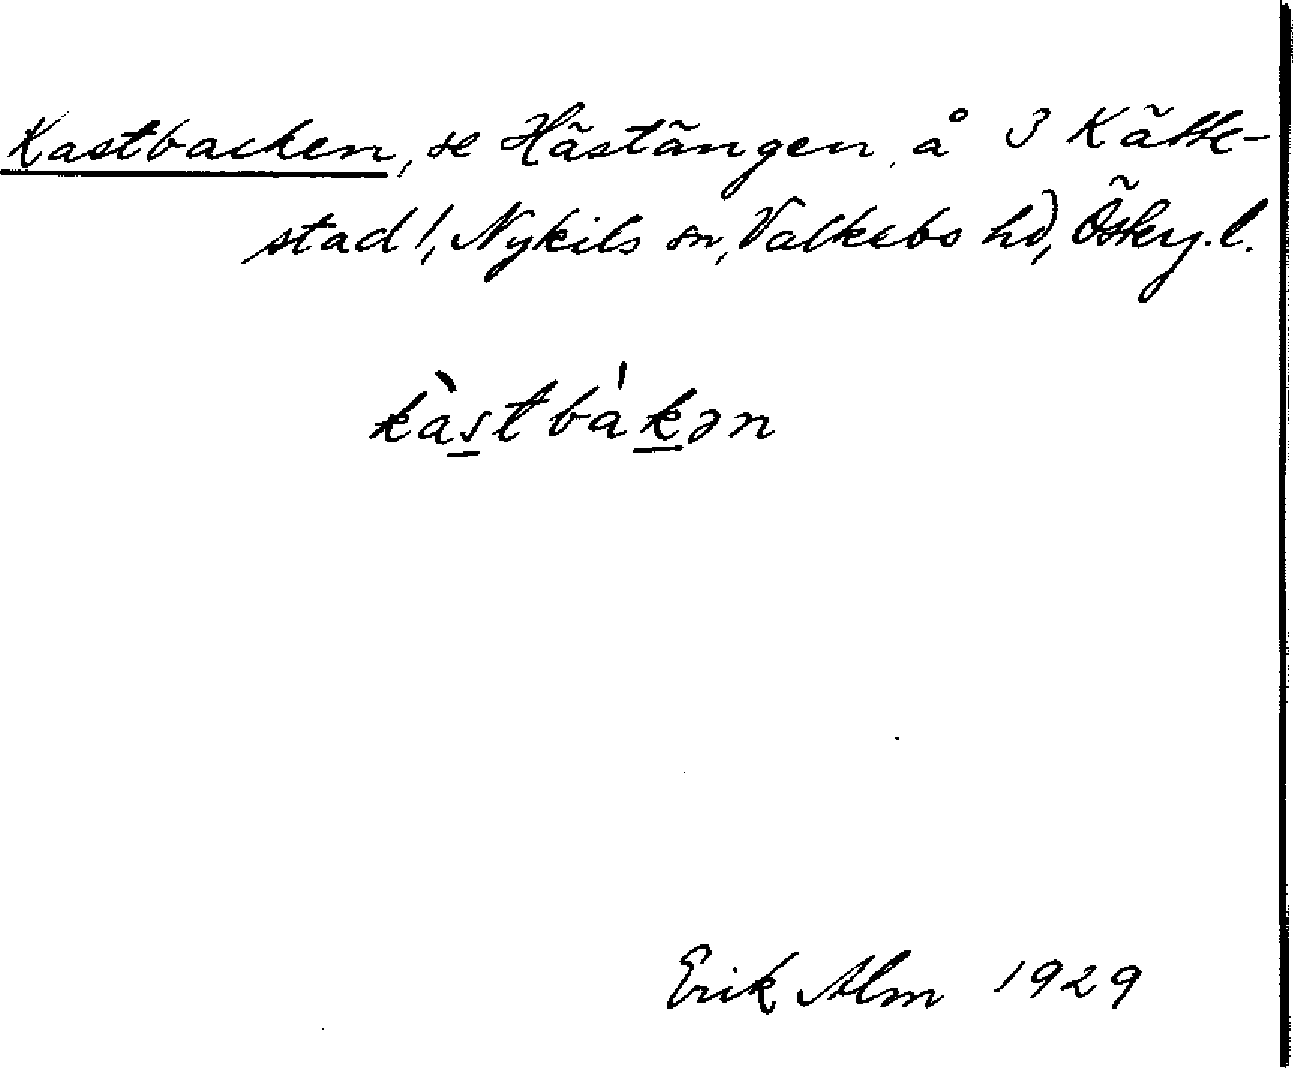 Kastbacken, se Hästängen, å 3 Kätte-
stad!, Nykils sn, Valkebo hd,
kàstbàkən
Erik Alm 1929